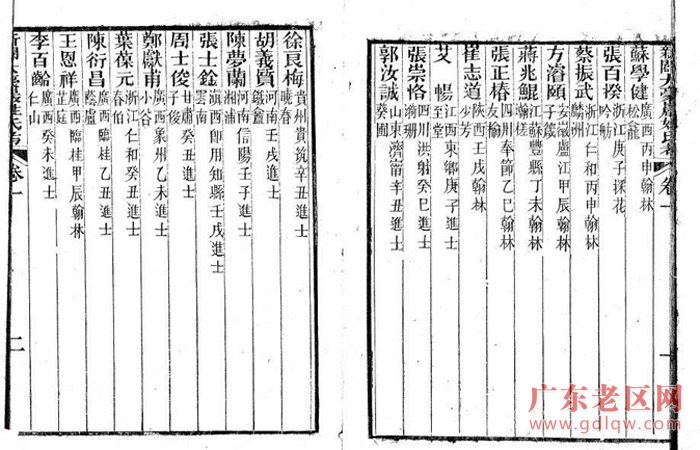 卷一
蘇學健 崧龍 廣西丙申翰林
張百揆 吟舫 浙江庚子探花
蔡振武 麟洲 浙江仁和丙申翰林
方濬頤 子箴 安徽廬江甲辰翰林
蔣兆鯤 瀚槎 江蘇豐縣丁未翰林
張正椿 友榆 四川奉節乙巳翰林
崔志道 少芳 陝西壬戌翰林
艾暢 至堂 江西東鄉庚子進士
張崇恪 四川洪射癸巳進士
郭汝誠 葵圃 山東濟甯辛丑進士
一
徐良梅 曉春 貴州貴筑辛丑進士
胡義質 河南壬戌進士
陳夢蘭 湘浦 河南信陽壬子進士
張士銓 雲南 滇西即用知縣壬戌進士
周士俊 子俊 甘肅進士
鄭獻甫 小谷 廣西象州乙未進士
葉葆元 春伯 浙江仁和癸丑進士
陳衍昌 廣西臨桂乙丑進士
王恩祥 芷庭 廣西臨桂甲辰翰林
李百齡 仁山 廣西癸未進士
卷一
二
广东老区网
www.gdlqw.com